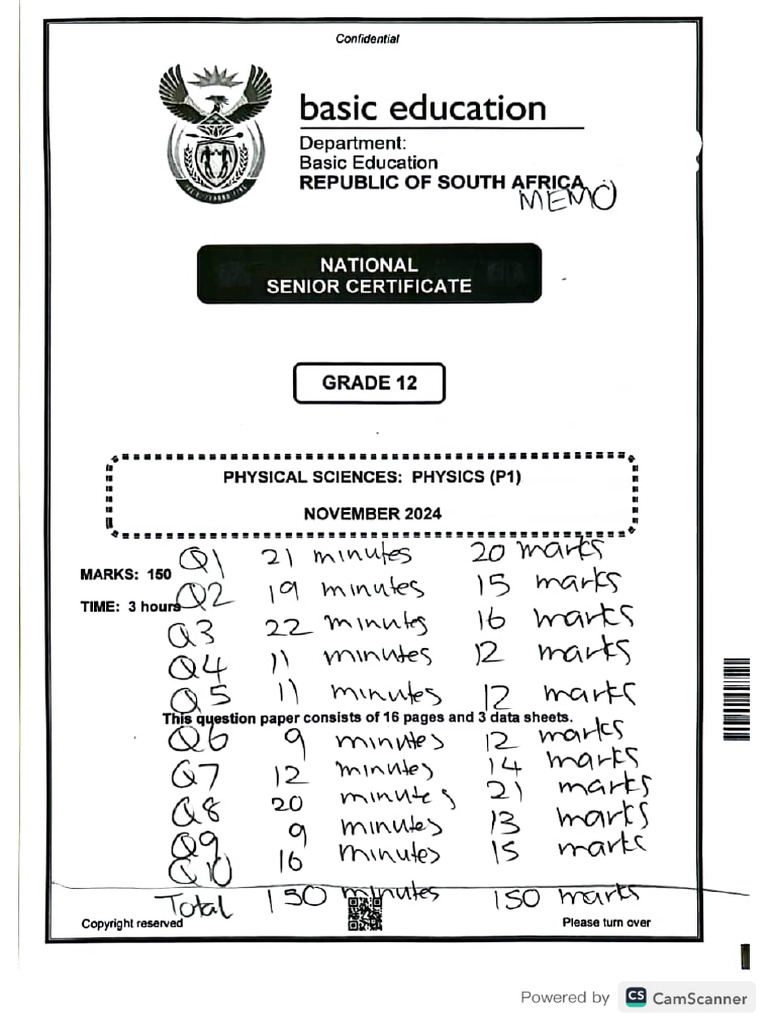 Confidential
basic education
Department:
Basic Education
REPUBLIC OF SOUTH AFRICA
MEMO
NATIONAL
SENIOR CERTIFICATE
GRADE 12
PHYSICAL SCIENCES: PHYSICS (P1)
NOVEMBER 2024
Q1 21 minutes 20 marks
MARKS: 150
Q2 19 minutes 15 marks
TIME: 3 hours
Q3 22 minutes 16 marks
Q4 11 minutes 12 marks
Q5 11 minutes 12 marks
This question paper consists of 16 pages and 3 data sheets.
Q6 9 minutes 12 marks
Q7 12 minutes 14 marks
Q8 20 minutes 21 marks
Q9 9 minutes 13 marks
Q10 16 minutes 15 marks
Total 150 minutes 150 marks
Copyright reserved Please turn over
Powered by CS CamScanner